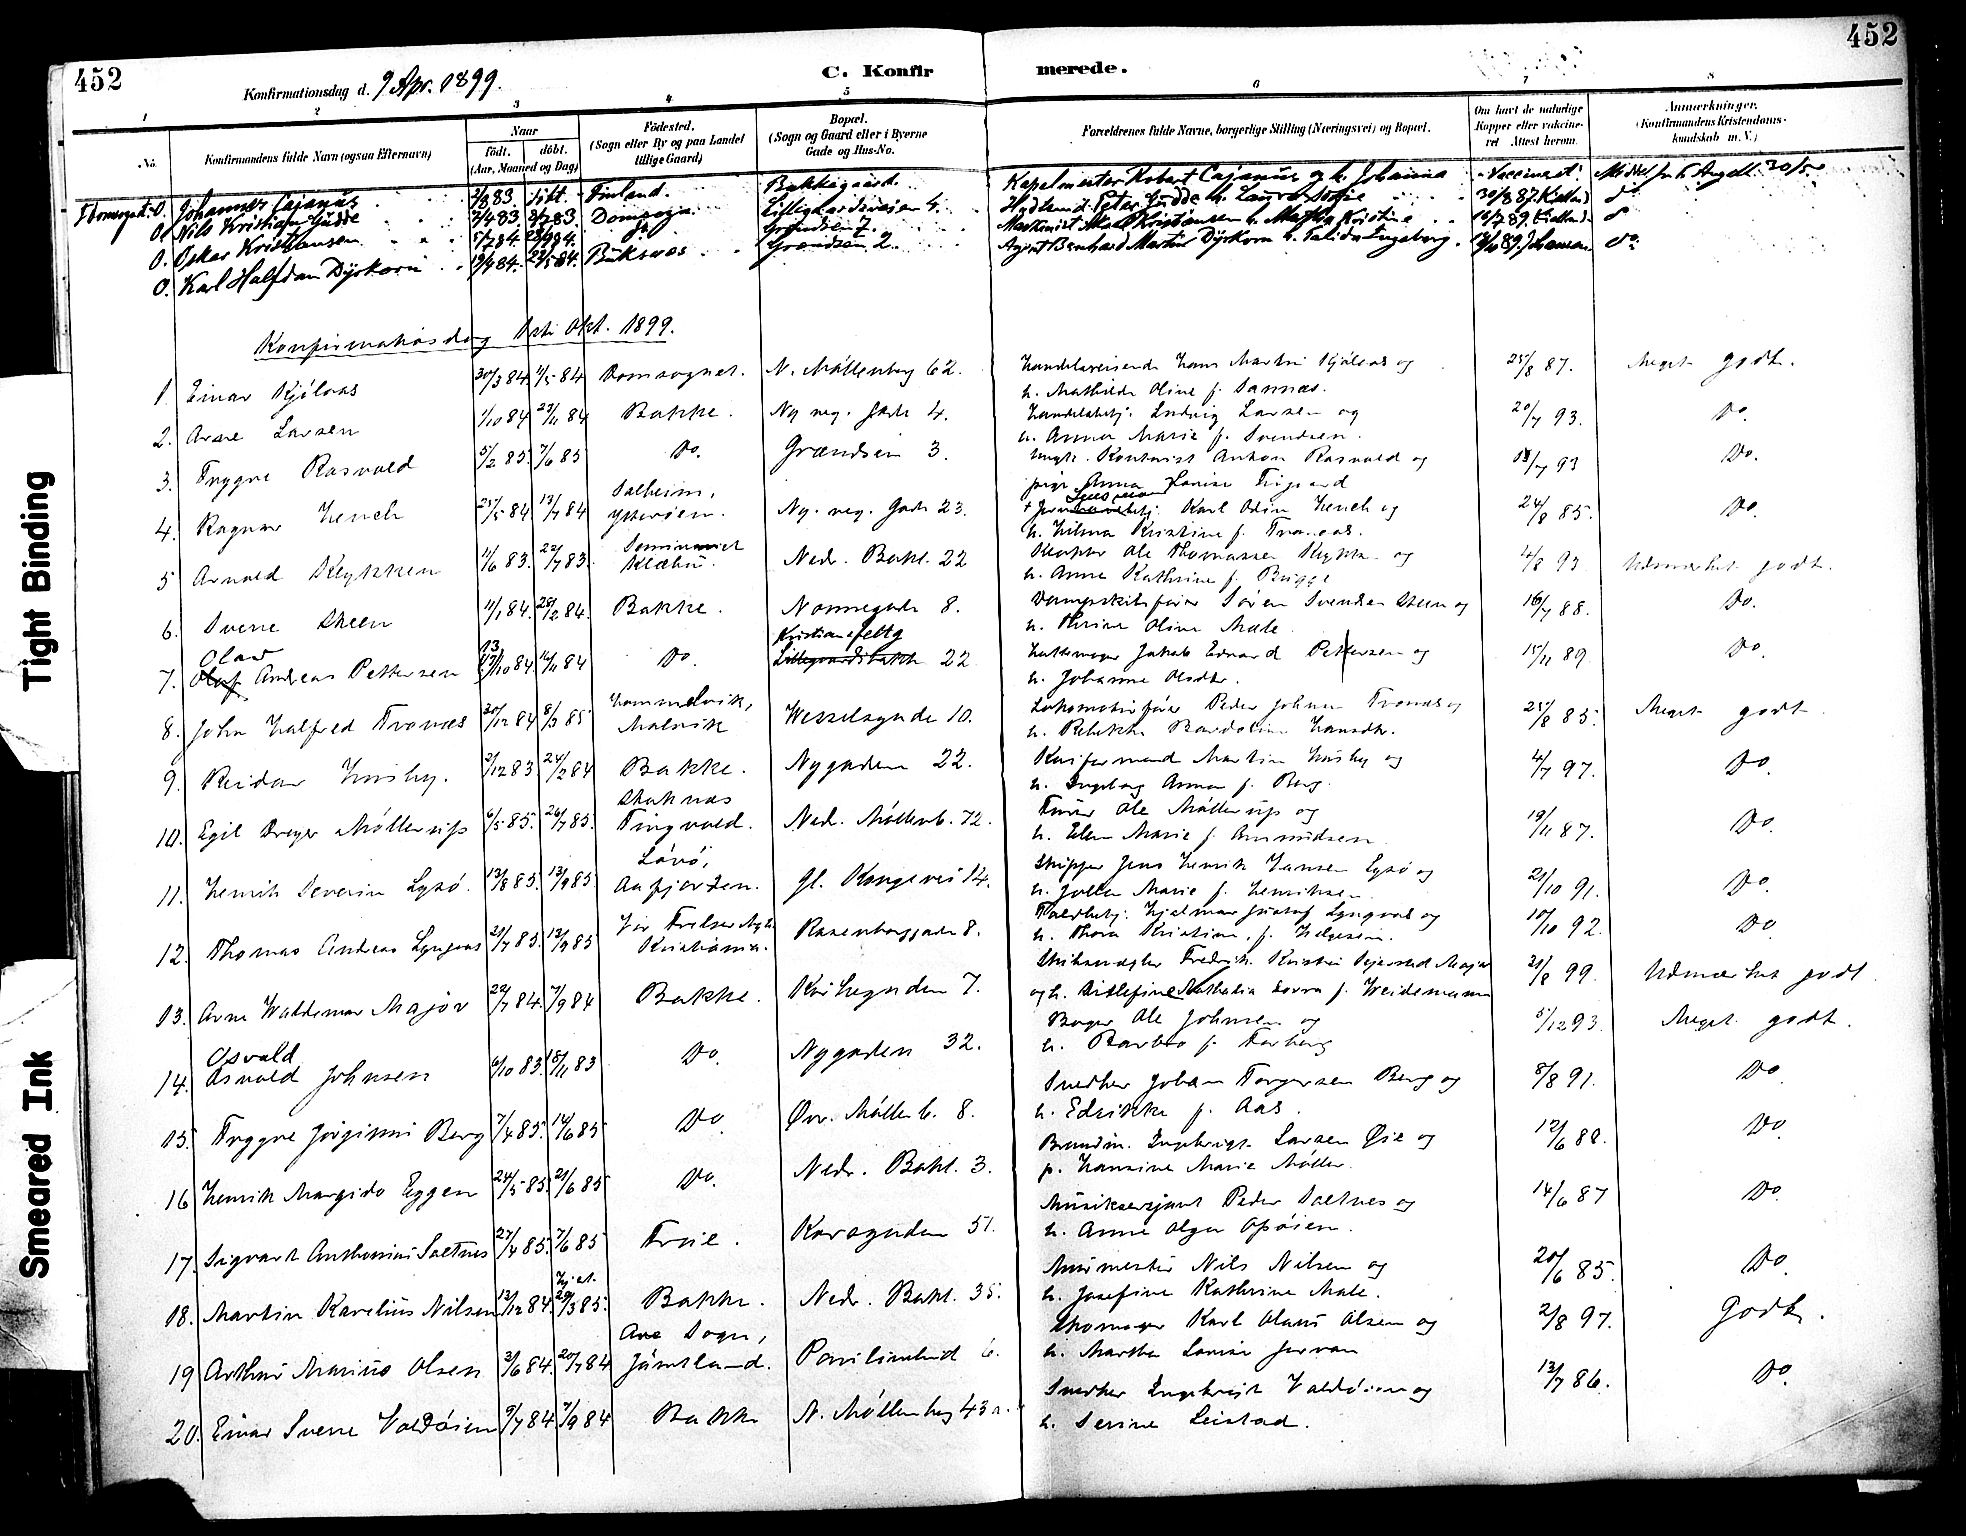 452
452
Konfirmationsdag d. 9 Apr. 1899.
C. Konfir merede.
1 2 3 4 5 6 7 8
No.
Konfirmandens fulde Navn (ogsaa Efternavn)
Naar
født. døbt.
(Aar, Maaned og Dag)
Fødested.
(Sogn eller By og paa Landet
tillige Gaard)
Bopæl.
(Sogn og Gaard eller i Byerne
Gade og Hus-No.
Forældrenes fulde Navne, borgerlige Stilling (Næringsvei) og Bopæl.
Om havt de naturlige
Kopper eller vakcine-
ret Attest herom.
Anmærkninger.
(Konfirmandens Kristendoms-
kundskab m. V.)
0. Johannes Cajanus 83 Finland. Bakkegaard. Kapelmester Robert Cajanus og h. Johanna Vaccineret
0. Nils Kristian Gudde 2/4 83 83 Domsogn. Lillegaardsveien 4. Peter Gudde h. Laura Sofie 30/8 87 do
0. Oskar Kristiansen 5/7 84. 84. Grændsen 7. Maskinist Kristiansen h. Kristine 89
0. Karl Halfdan Dyrkorn 19/4 84. 84. Buksnæs Grændsen 2. Agent Bernhard Martin Dyrkorn h. Ingeborg. 89. do
Konfirmationsdag 1ste Okt. 1899.
1. Einar Kjølaas 30/3 84 /5 84 Domsognet. N. Møllenberg 62. Handelsreisende Hans Martin Kjølaas og 25/8 87. Meget godt.
h. Mathilde Oline f. Sannæs.
2. Arne Larsen 1/10 84 23/11 84 Bakke. Ny. reg. Gade 4. Handelsbetj. Ludvig Larsen og 20/7 93. Do.
h. Anna Marie f. Svendsen.
3. Trygve Rasvold 5/2 85. 7/6 85 Do. Grændsen 3. Ungk. Kontorist Anton Rasvold og 7 93 Do.
pige Anna Louise
4. Ragnar Hench 25/5 84 13/7 84 Salheim, Ytterøen. Ny. reg. Gade 23. Karl Odin Hench og 24/8 85. Do.
h. Hilma Kristine f. Tranaas.
5 Arnold Klykken 11/6 83. 22/7 83. Seminariet Klæbu. Nedr. Bakl. 22 Ole Thomassen Klykken og 4/8 93. Udmærket godt.
h. Anne Kathrine f. Brigge
6. Sverre Steen 11/1 84. 28/2 84 Bakke. Nonnegade 8. Dampskibsfører Søren Svendsen Steen og 16/7 88. Do.
h. Thrine Oline Male.
Olav
7. Olaf Andreas Pettersen 13/10 84 16/11 84 Do. Kristiansfeltg Lillegaardsbakk 22 Jakob Edvard Pettersen og 15/11 89. Do.
h. Johanne Olsdtr.
8. John Halfred Tronæs 30/12 84 8/3 85 Hommelvik, Malvik Wesselsgade 10. Lokomotivfører Peder Johnsen Tronæs og 25/8 85. Meget godt
h. Rebekka Bardoline Hansdtr.
9. Reidar Husby. 2/12 83 24/2 84 Bakke. Nygaden 22. Martin Husby og 4/7 97. Do.
h. Ingeborg Anna f. Berg.
10. Egil Dreyer Møllerup 6/5 85. 26/7 85. Staknæs Tingvold. Ned. Møllenb. 72. Ole Møllerup og 19/11 87. Do.
h. Elen Marie f. Asmundsen
11. Henrik Severin Lysø. 13/8 85. 13/9 85 Løvø, Aafjorden. Gl. Kongevei 14. Skipper Jens Henrik Hansen Lysø og 21/10 91. Do.
h. Marie f. Henriksen
12. Thomas Andreas Lyngaas 21/7 85. 13/9 85 Vor Frelser Kristiania. Rosenborggade 8. Hjalmar Gustaf Lyngaas og 10/10 92. Do
h. Thora Kristine, f. Helgesen.
13. Arne Waldemar Major 22/7 84. 7/9 84 Bakke. Kirkegaden 7. Skibsmægler Fredrik Kristen Sejersted Major 21/8 99. Udmærket godt
og h. Ditlefine Nathalia Lovra f. Weidemann
Osvald
14. Asvald Johnsen 6/10 83. 18/11 83 Do. Nygaden 32. Bager Ole Johnsen og 5/12 93. Meget godt.
h. Barbro f. Forberg
15. Tryggve Jørginus Berg 7/4 85. 14/6 85 Do Øvr. Møllenb. 8. Snedker Johan Torgersen Berg og 8/8 91. Do
h. Edrikke f. Aas.
16 Henrik Margido Eggen 24/5 85. 21/6 85 Do. Nedr. Bakl. 3. Brandm. Ingebrigt Larsen Øie og 12/6 88. Do
p. Hansine Marie Møller.
17. Sigvart Anthonius Sætnes 27/4 85. 7/6 85 Frøie. Korsgaden 51. Musiksersjant Peder Sætnes og 14/6 87 Do
h. Anne Olga Opøien.
18. Martin Karelius Nilsen 12/12 84. Hj. 29/3 85. Bakke. Nedr. Bakl. 35. Murmester Nils Nilsen og 20/6 85. Do
h. Josefine Kathrine Male.
19 Arthur Marius Olsen 3/6 84. 20/7 84 Are Sogn, Jämtland. Pavilionlund 6. Skomager Karl Olaus Olsen og 2/8 97. Godt.
h. Martha Louise
20. Einar Sverre Valdøien 9/7 84 7/9 84 Bakke N. Møllenberg 43 a. Snedker Ingebrigt Valdøien og 13/7 86. Do.
h. Serine Leistad.
Tight Binding
Smeared Ink